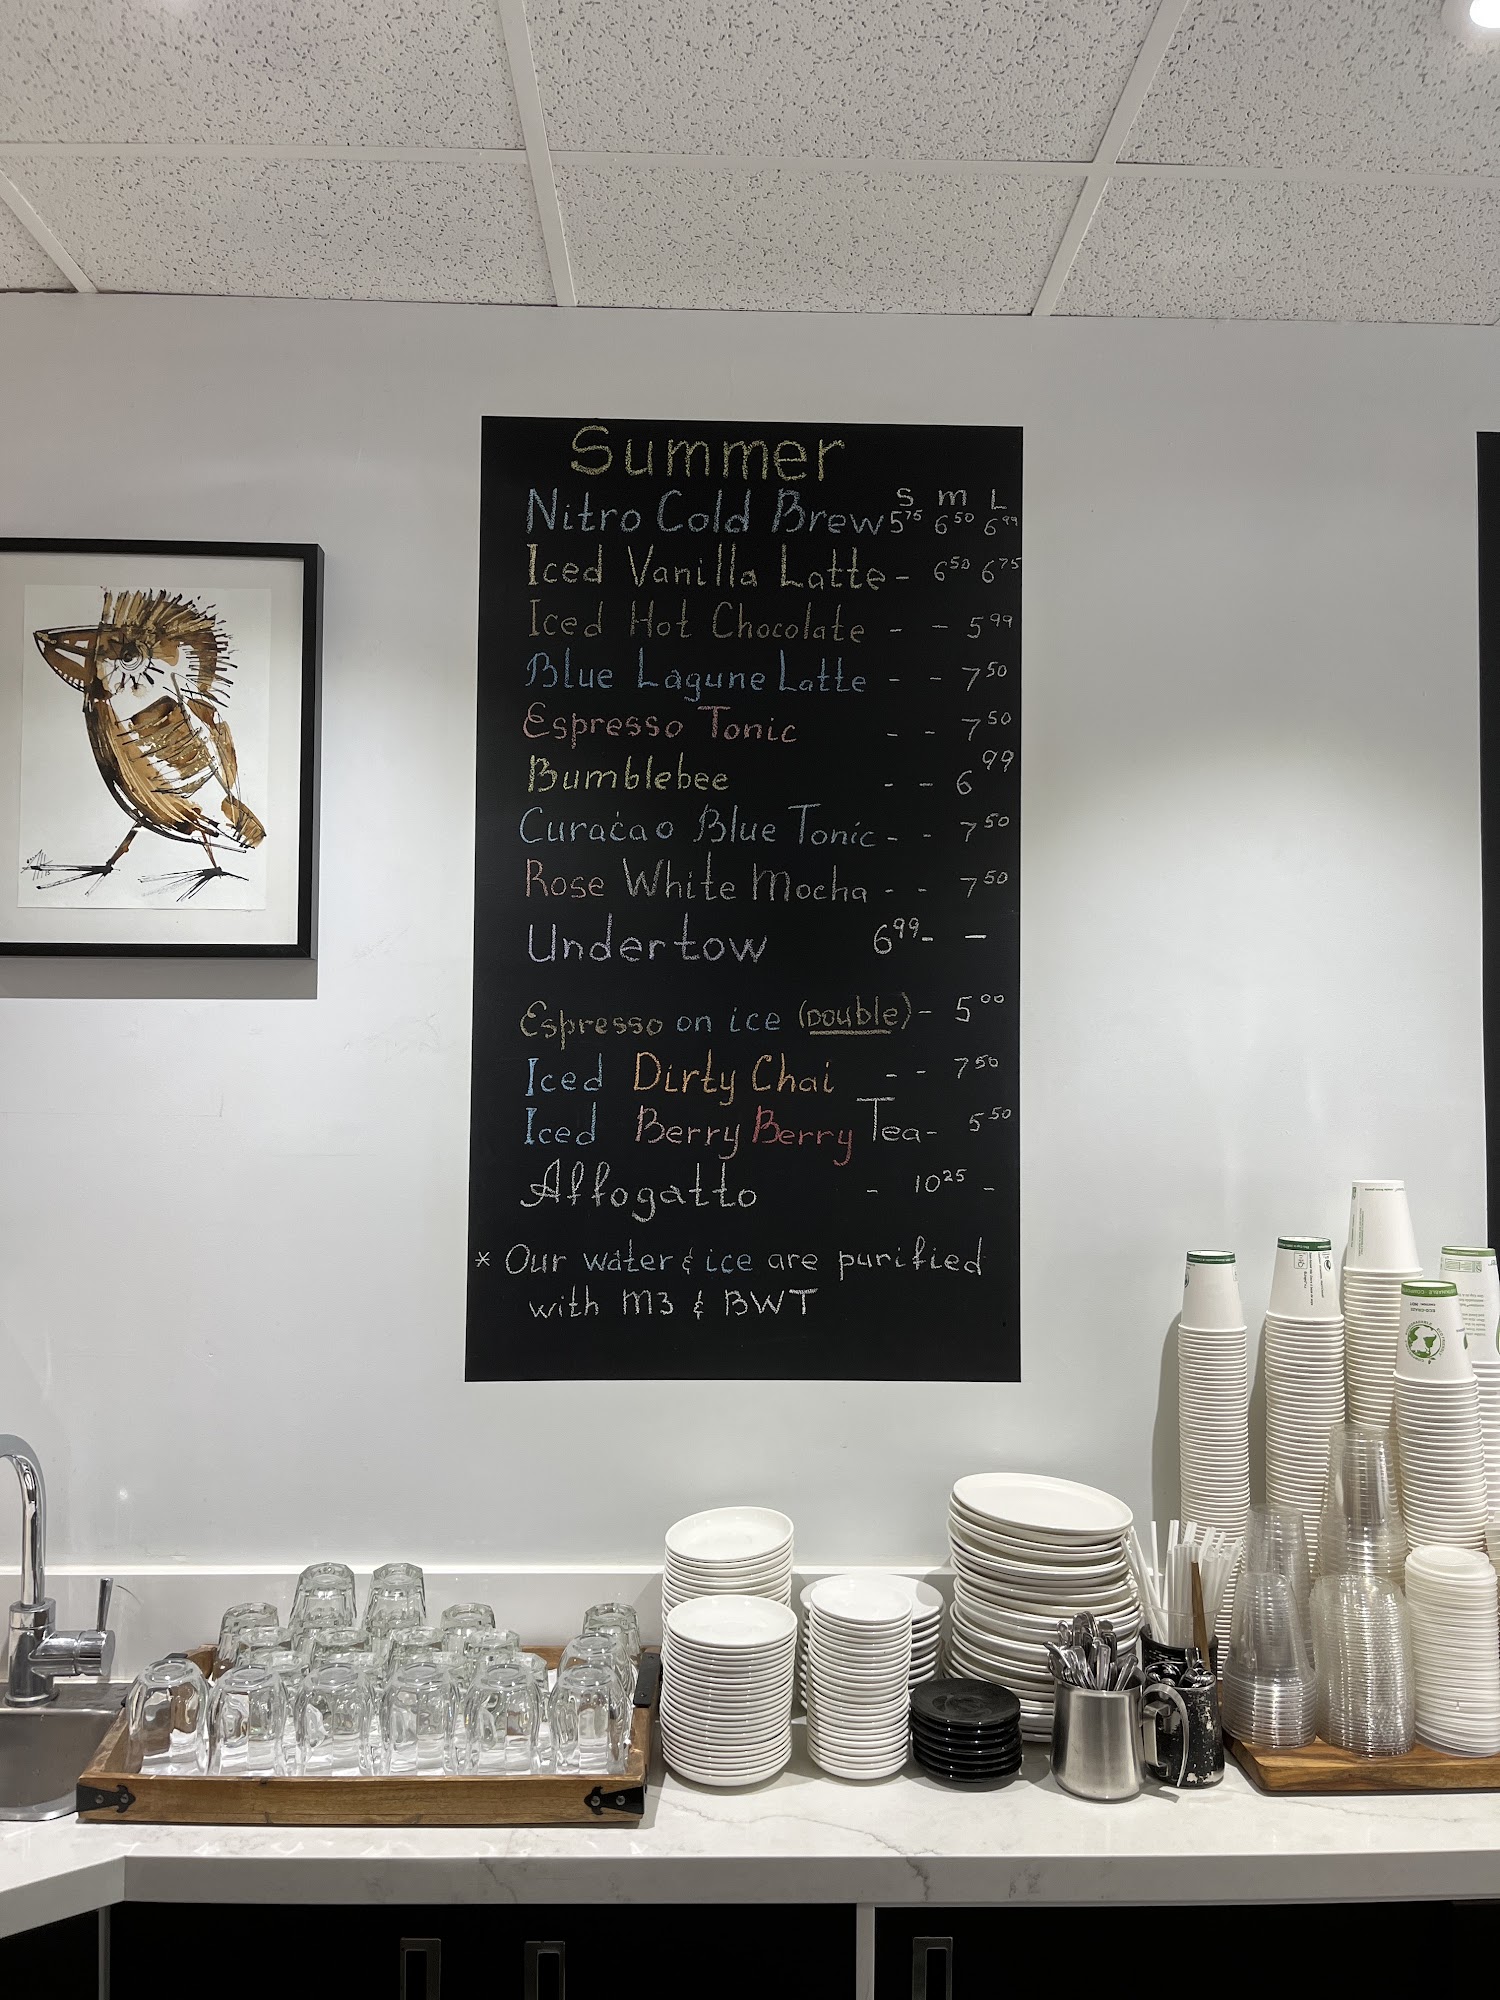 Summer
S m L
Nitro Cold Brew 5 75 6 50 6 99
Iced Vanilla Latte - 6 50 6 75
Iced Hot Chocolate - - 5 99
Blue Lagune Latte - - 7 50
Espresso Tonic - - 7 50
Bumblebee - - 6 99
Curaċao Blue Tonic - - 7 50
Rose White Mocha - - 7 50
Undertow 6 99 - -
Espresso on ice (DOUBLE) - 5 00
Iced Dirty Chai - - 7 50
Iced Berry Berry Tea - 5 50
Affogatto - 10 25 -
* Our water & ice are purified
with M3 & BWT